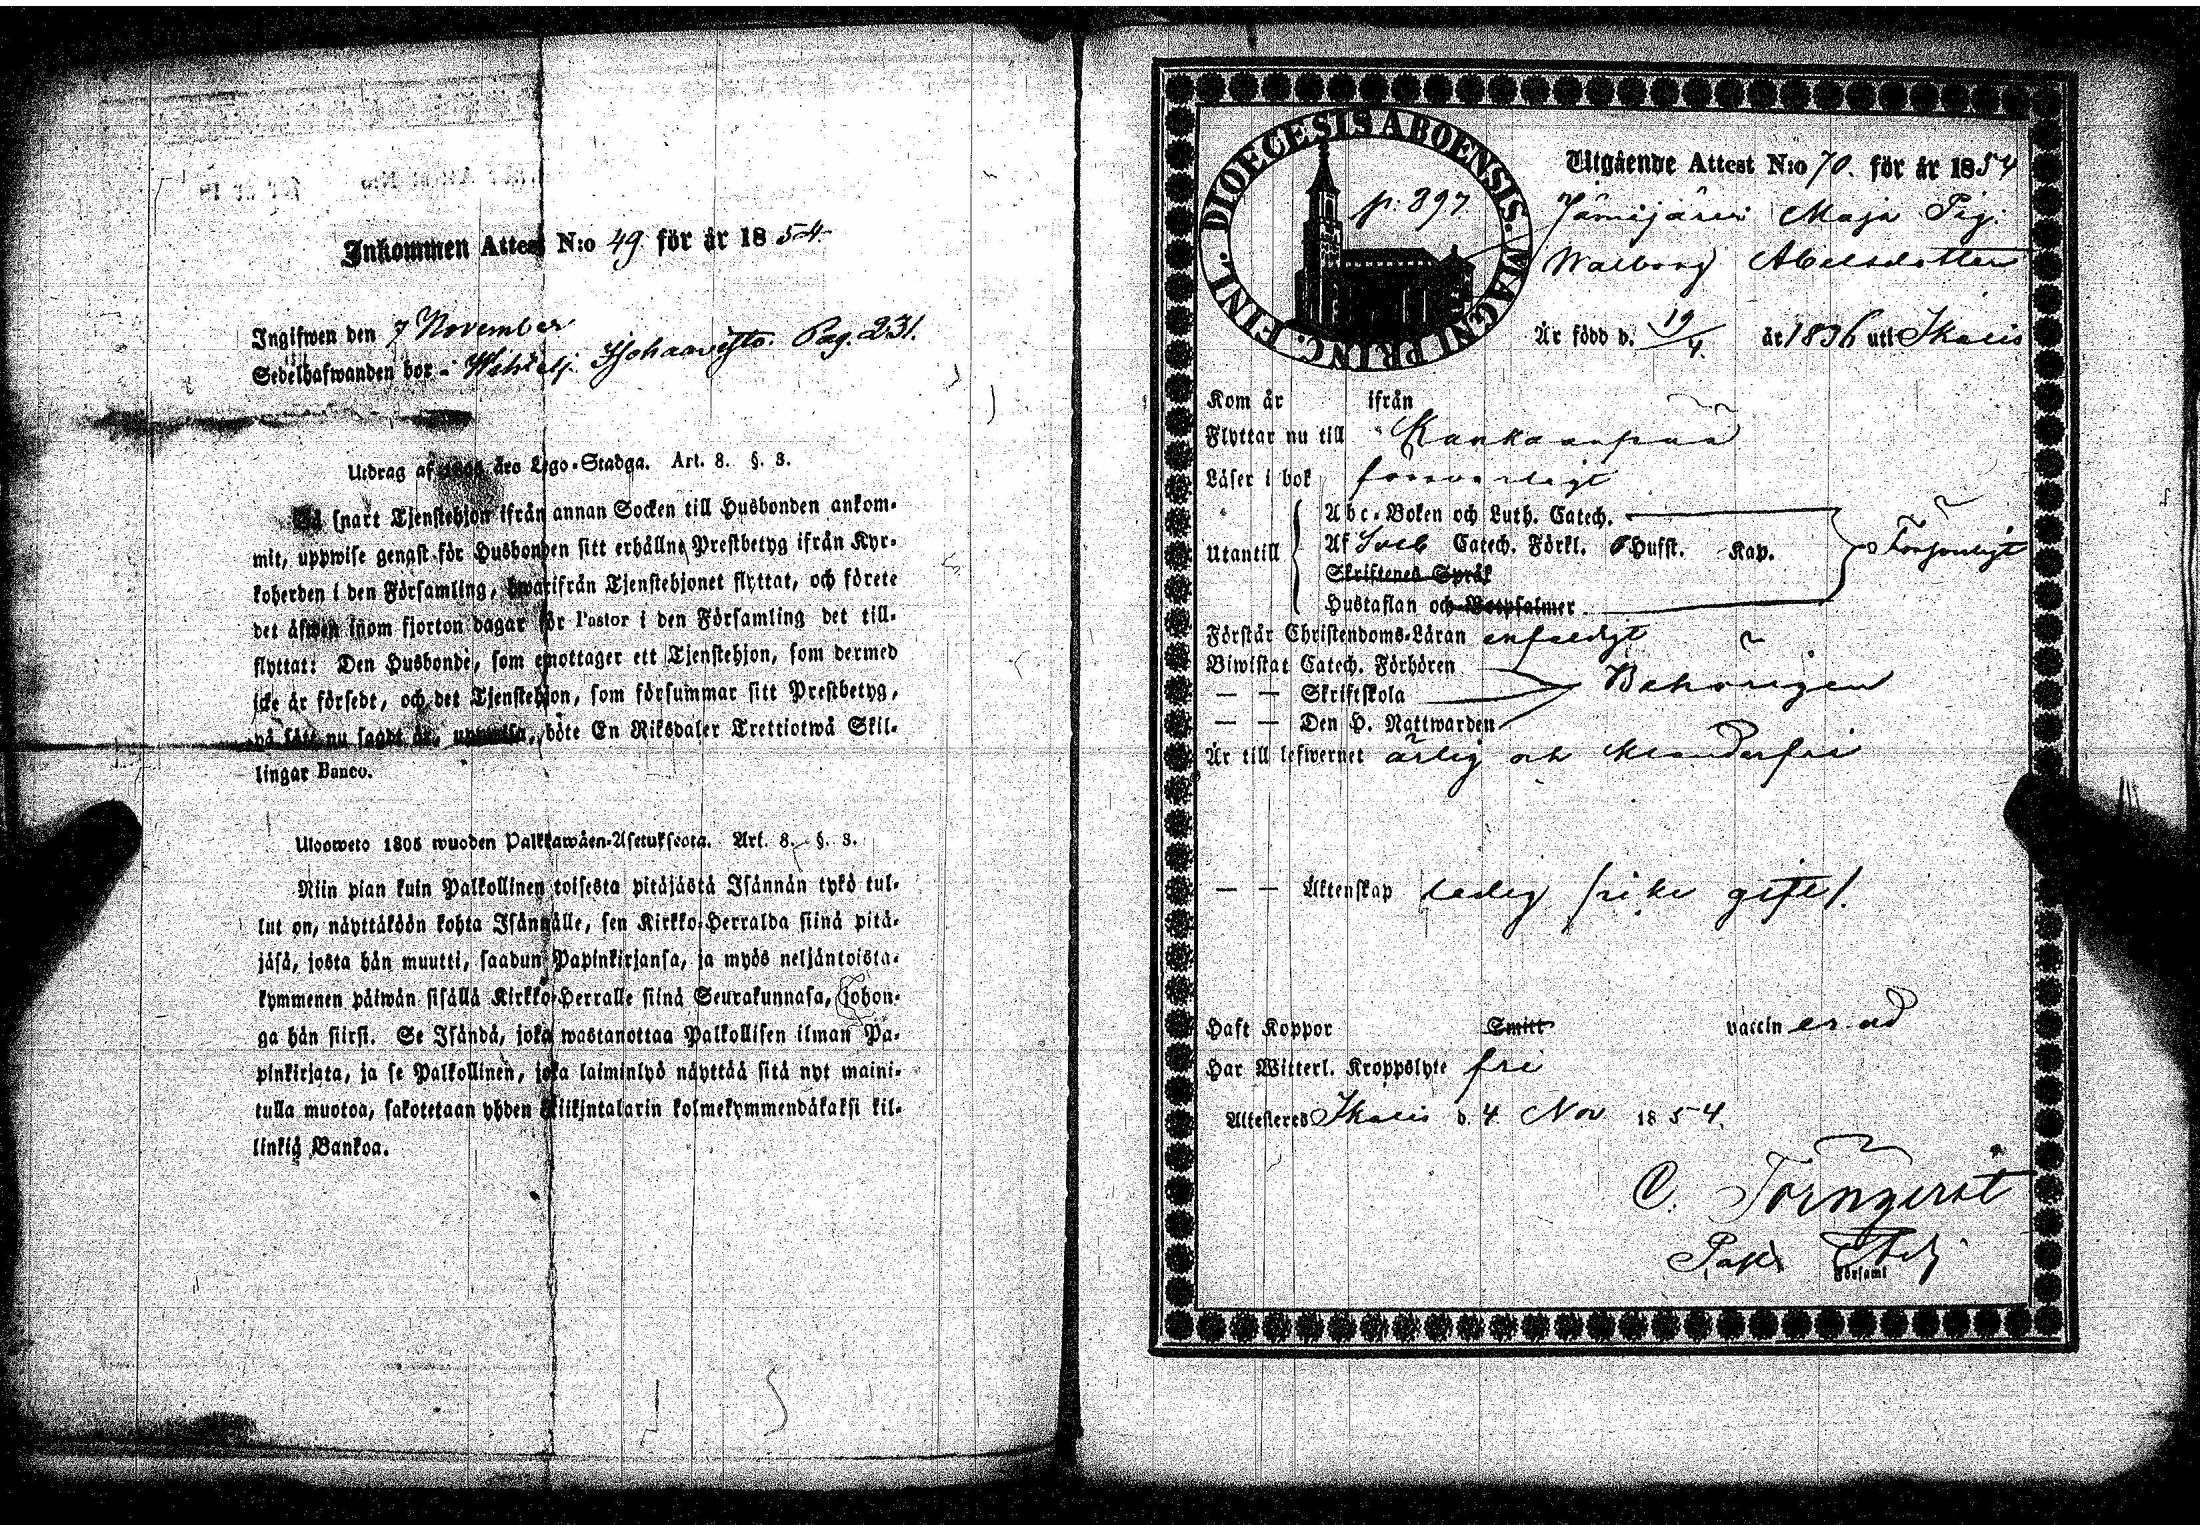 Inkommen Attest N:o 49 för år 1854.
Ingifwen den 7 November
Sedelhafwanden bor i Pag. 231.
Utdrag af års Lego-Stadga. Art. 8. §. 3.
Så snart Tjenstehjon ifrån annan Socken till Husbonden ankom-
mit, uppwise genast för Husbonden sitt erhållne Prestbetyg ifrån Kyr-
koherden i den Församling, hwarifrån Tjenstehjonet flyttat, och förete
det äfwen inom fjorton dagar för Pastor i den Församling det till-
flyttat: Den Husbonde, som emottager ett Tjenstehjon, som dermed
icke är försedt, och det Tjenstehjon, som försummar sitt Prestbetyg,
på sätt nu sagdt är, uppwisa, böte En Riksdaler Trettiotwå Skil-
lingar Banco.
Uloosweto 1805 wuoden Palkkawäen-Asetuksesta. Art. 8. §. 3.
Niin pian kuin Palkollinen toisesta pitäjästä Isännän tykö tul-
lut on, näyttäköön kohta Isännälle, sen Kirkko-Herralda siinä pitä-
jäsä, josta hän muutti, saadun Papinkirjansa, ja myös neljäntoista-
kymmenen päiwän sisällä Kirkko-Herralle siinä Seurakunnasa, johon-
ga hän siirsi. Se Isändä, joka wastanottaa Palkollisen ilman Pa-
pinkirjata, ja se Palkollinen, joka laiminlyö näyttää sitä nyt maini-
tulla muotoa, sakotetaan yhden Riikintalarin kolmekymmendäkaksi kil-
linkiä Bankoa.
DIOECESIS ABOENSIS. MAGNI PRINC. FINL.
p. 397
Utgående Attest N:o 70. för år 1854
Jämijärvi Maja Pig.
Walborg Abelsdotter
Är född d. 19/4. år 1836 uti Ikalis
Kom år ifrån
Flyttar nu till Kankaanpää
Läser i bok försvarligt
Utantill
Abc-Boken och Luth. Catech.
Af Sveb Catech. Förkl. 6 Hufst. Kap.
Skriftenes Språk
Hustaflan och Botpsalmer
Förstår Christendoms-Läran enfaldigt
Biwistat Catech. Förhören
— — Skriftskola Behörigen
— — Den H. Nattwarden
Är till lefwernet ärlig och klanderfri
— — Äktenskap ledig
Haft Koppor Smitt vaccinerad
Har Witterl. Kroppslyte fri
Attesteres Ikalis d. 4 Nov 1854.
C. Törnqvist
Församl